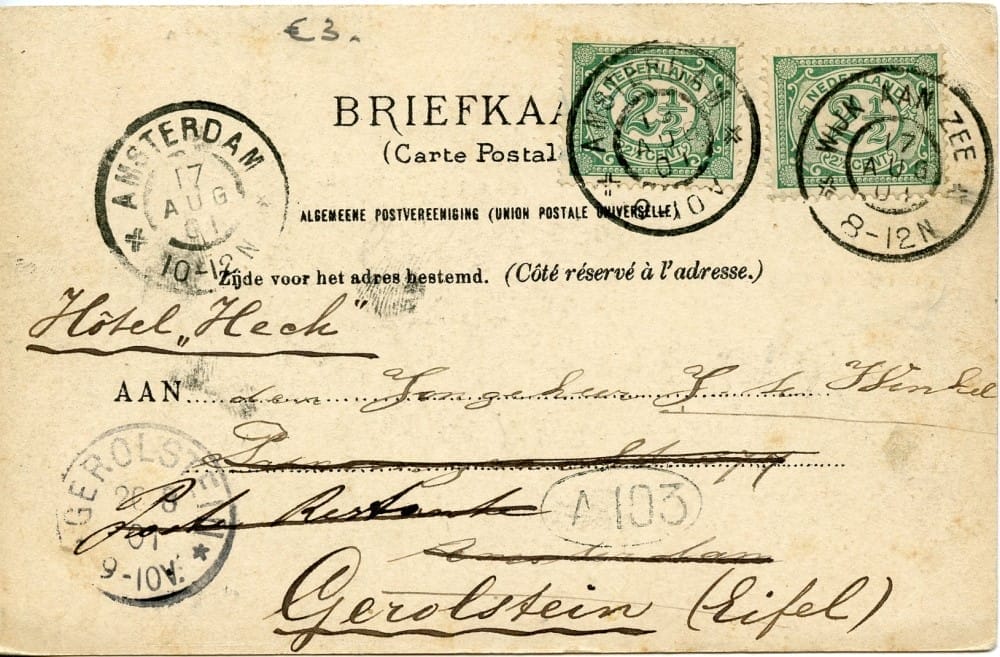 €3.
NEDERLAND
2½
2½ CENT 2½
NEDERLAND
2½
2½ CENT 2½
WIJK AAN ZEE
17
AUG
01
8-12N
BRIEFKAA
(Carte Postal
AMSTERDAM
17
AUG
01
10-12N
ALGEMEENE POSTVEREENIGING (UNION POSTALE UNIVERSELLE)
Zijde voor het adres bestemd. (Côté réservé à l'adresse.)
Hôtel „Heck"
AAN den Jongeheer J. te Winkel
GEROLSTEIN
Poste Restante
A 103
Amsterdam
Gerolstein (Eifel)